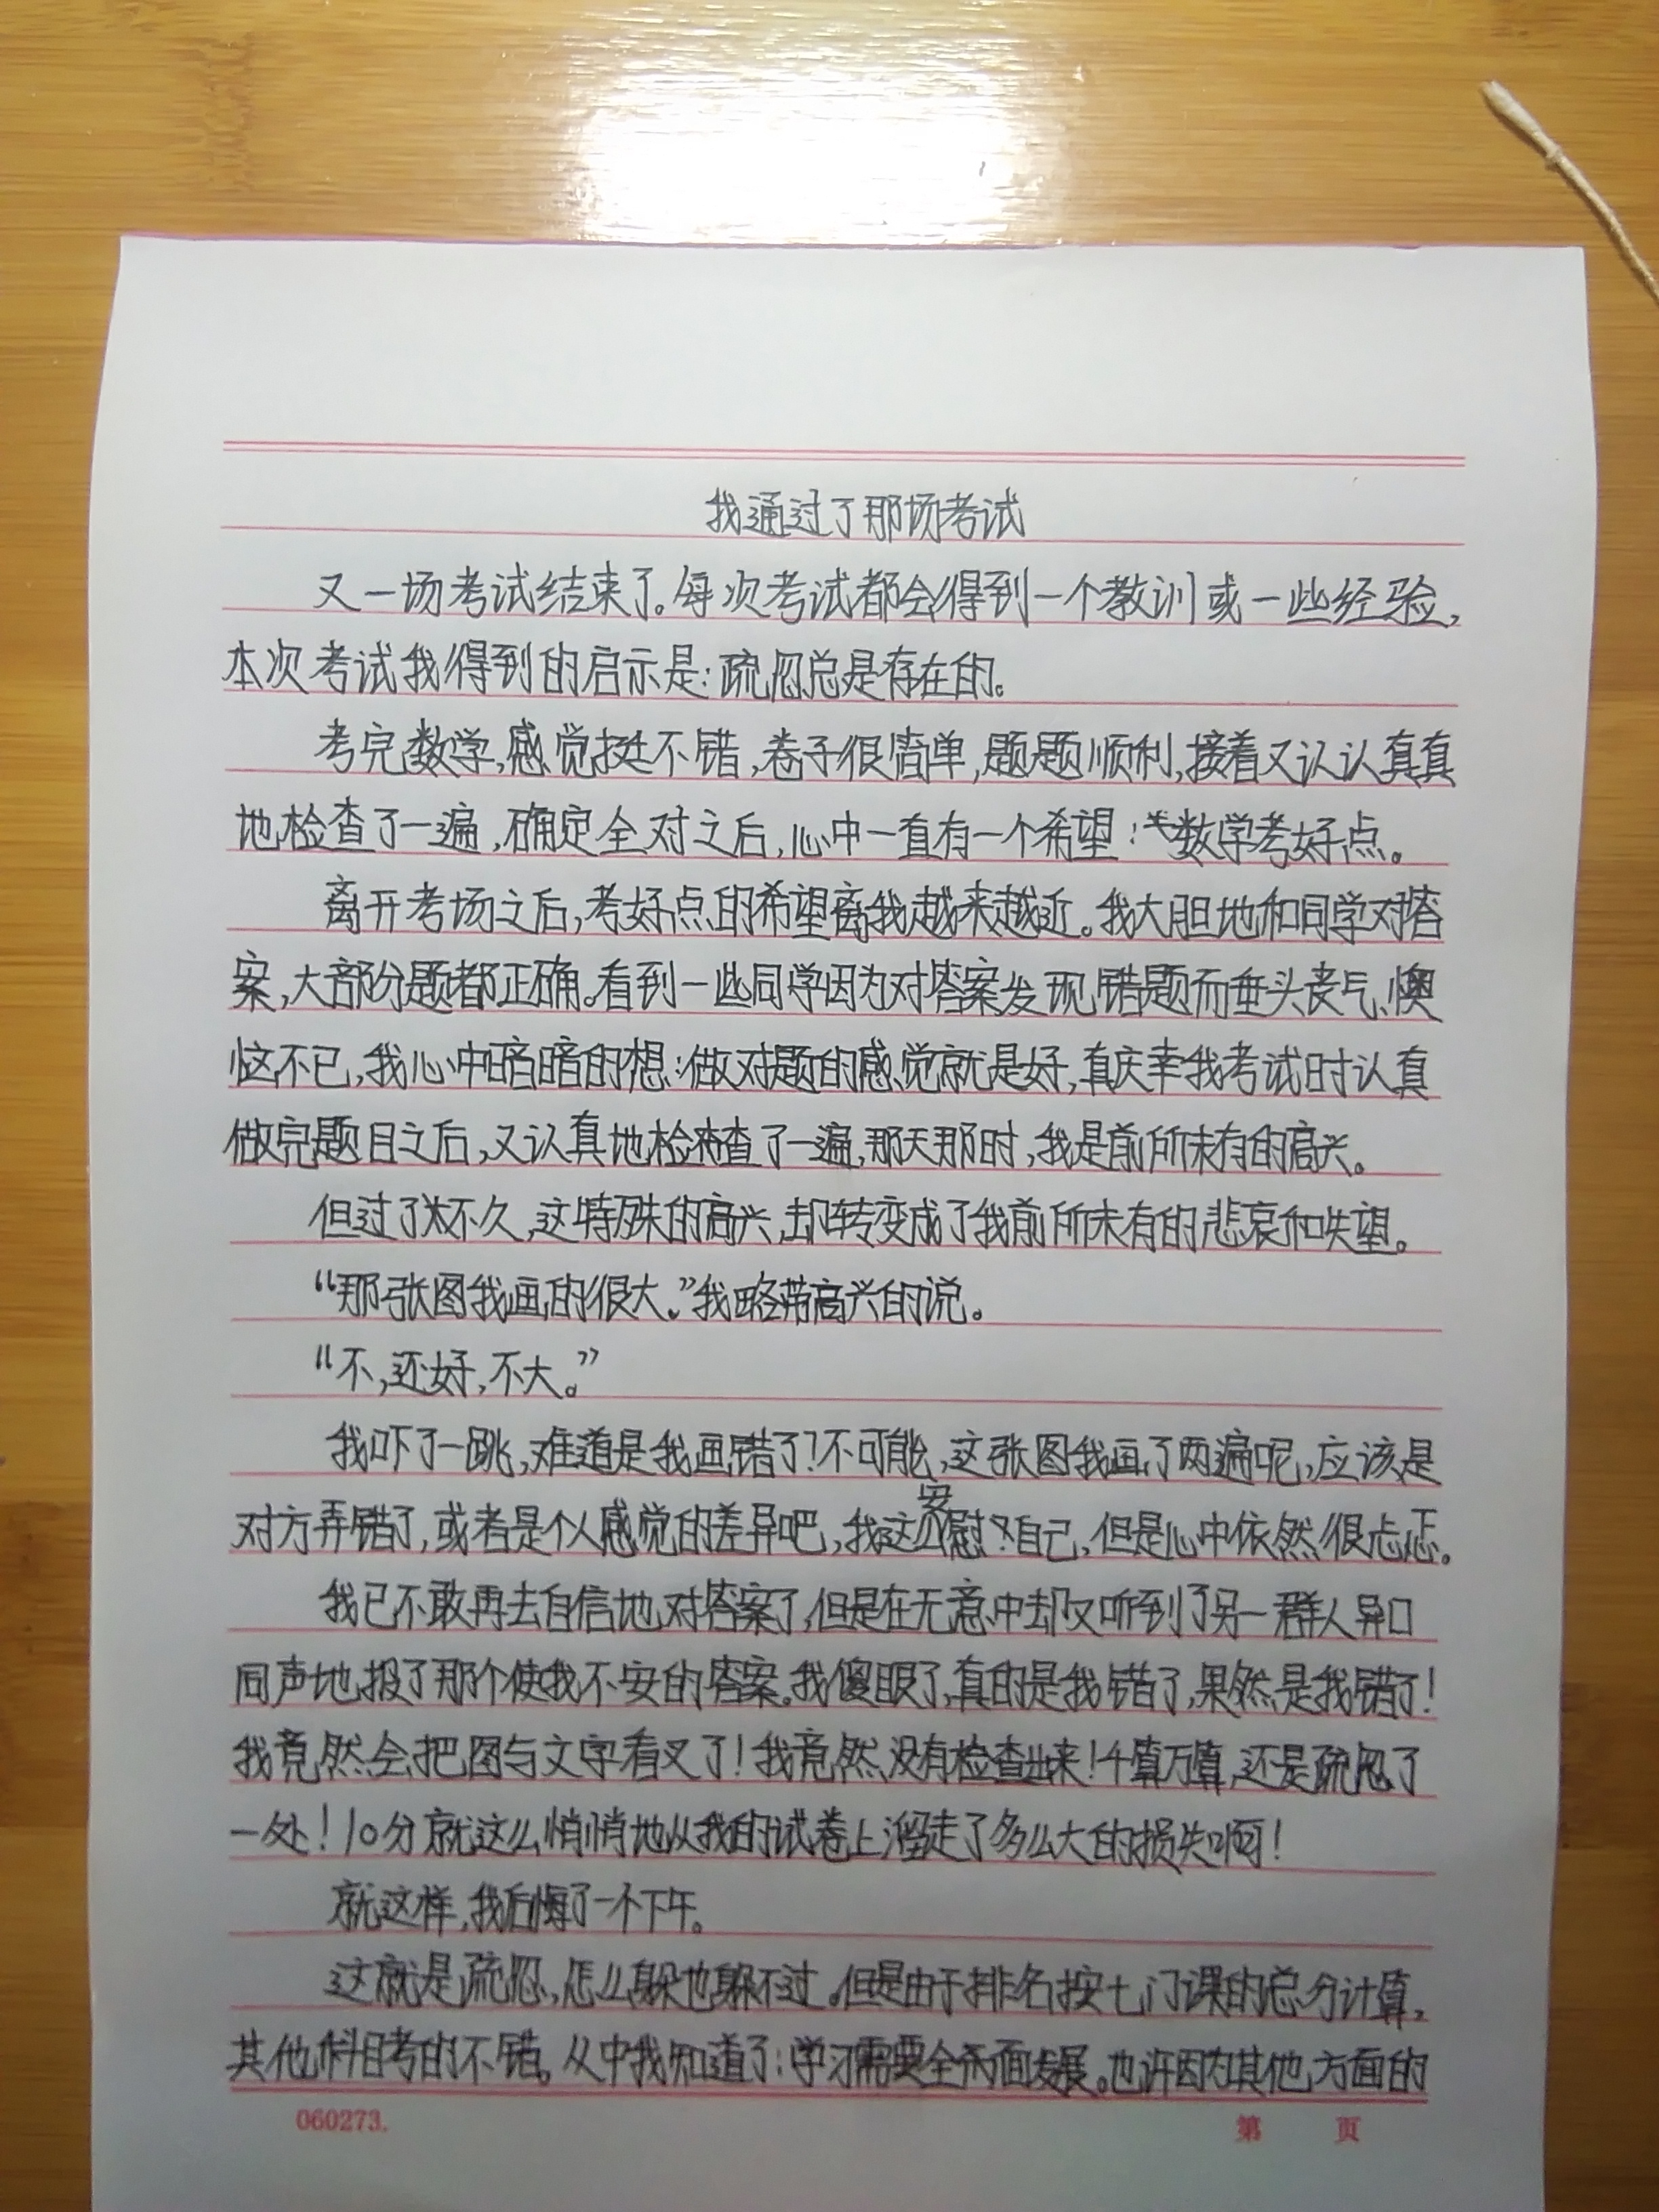 我通过了那场考试
又一场考试结束了。每次考试都会得到一个教训或一些经验,
本次考试我得到的启示是:疏忽总是存在的。
考完数学,感觉挺不错,卷子很简单,题题顺利,接着又认认真真
地检查了一遍,确定全对之后,心中一直有一个希望:数学考好点。
离开考场之后,考好点的希望离我越来越近。我大胆地和同学对答
案,大部份题都正确。看到一些同学因为对答案发现错题而垂头丧气、懊
恼不已,我心中暗暗的想:做对题的感觉就是好,真庆幸我考试时认真
做完题目之后,又认真地检查了一遍,那天那时,我是前所未有的高兴。
但过了不久,这特殊的高兴,却转变成了我前所未有的悲哀和失望。
“那张图我画的很大。”我略带高兴的说。
“不,还好,不大。”
我吓了一跳,难道是我画错了?不可能,这张图我画了两遍呢,应该是
对方弄错了,或者是个人感觉的差异吧,我这么安慰自己,但是心中依然很忐忑。
我已不敢再去自信地对答案了,但是在无意中却又听到了另一群人异口
同声地报了那个使我不安的答案。我傻眼了,真的是我错了,果然是我错了!
我竟然会把图与文字看叉了!我竟然没有检查出来!千算万算,还是疏忽了
一处!10分就这么悄悄地从我的试卷上溜走了多么大的损失啊!
就这样,我后悔了一个下午。
这就是疏忽,怎么躲也躲不过。但是由于排名按七门课的总分计算,
其他科目考的不错。从中我知道了:学习需要全面发展。也许因为其他方面的
060273.
第 页